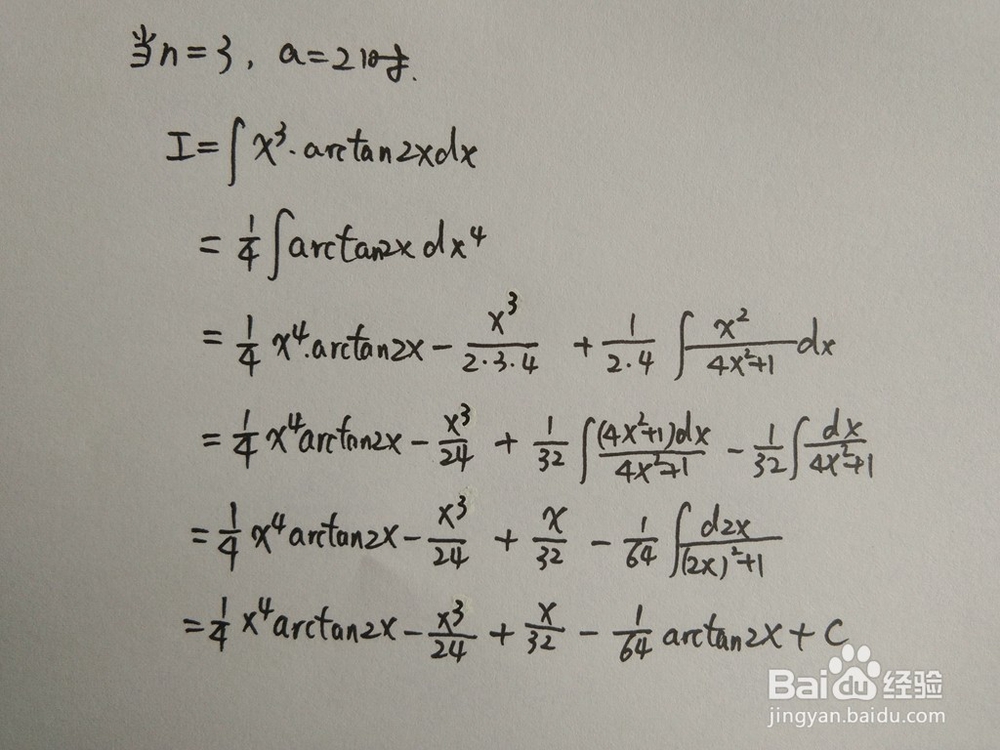 当n=3, a=2时.
I=∫x³·arctan2xdx
=1/4∫arctan2xdx⁴
=1/4 x⁴·arctan2x-x³/(2·3·4)+1/(2·4)∫x²/(4x²+1)dx
=1/4 x⁴arctan2x-x³/24+1/32∫(4x²+1)dx/(4x²+1)-1/32∫dx/(4x²+1)
=1/4 x⁴arctan2x-x³/24+x/32-1/64∫d2x/((2x)²+1)
=1/4 x⁴arctan2x-x³/24+x/32-1/64 arctan2x+C
Baidu经验
jingyan.baidu.com